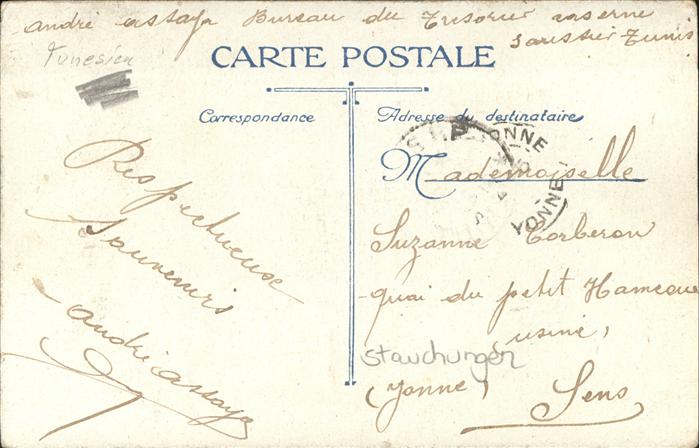 andré assaya Bureau du Trésorier caserne
Saussier Tunis
Tunesien
CARTE POSTALE
Correspondance
Adresse du destinataire
YONNE
YONNE
Mademoiselle
Suzanne Corberon
quai du petit Hameau
usine,
stauchungen
(Yonne) Sens
Respectueuse
Souvenirs
andré assaya